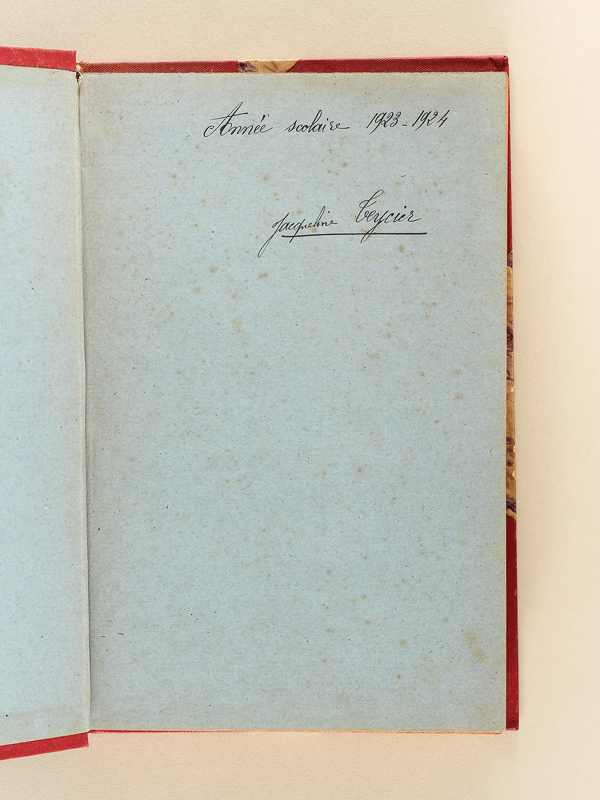 Année scolaire 1923-1924
Jacqueline Teycier